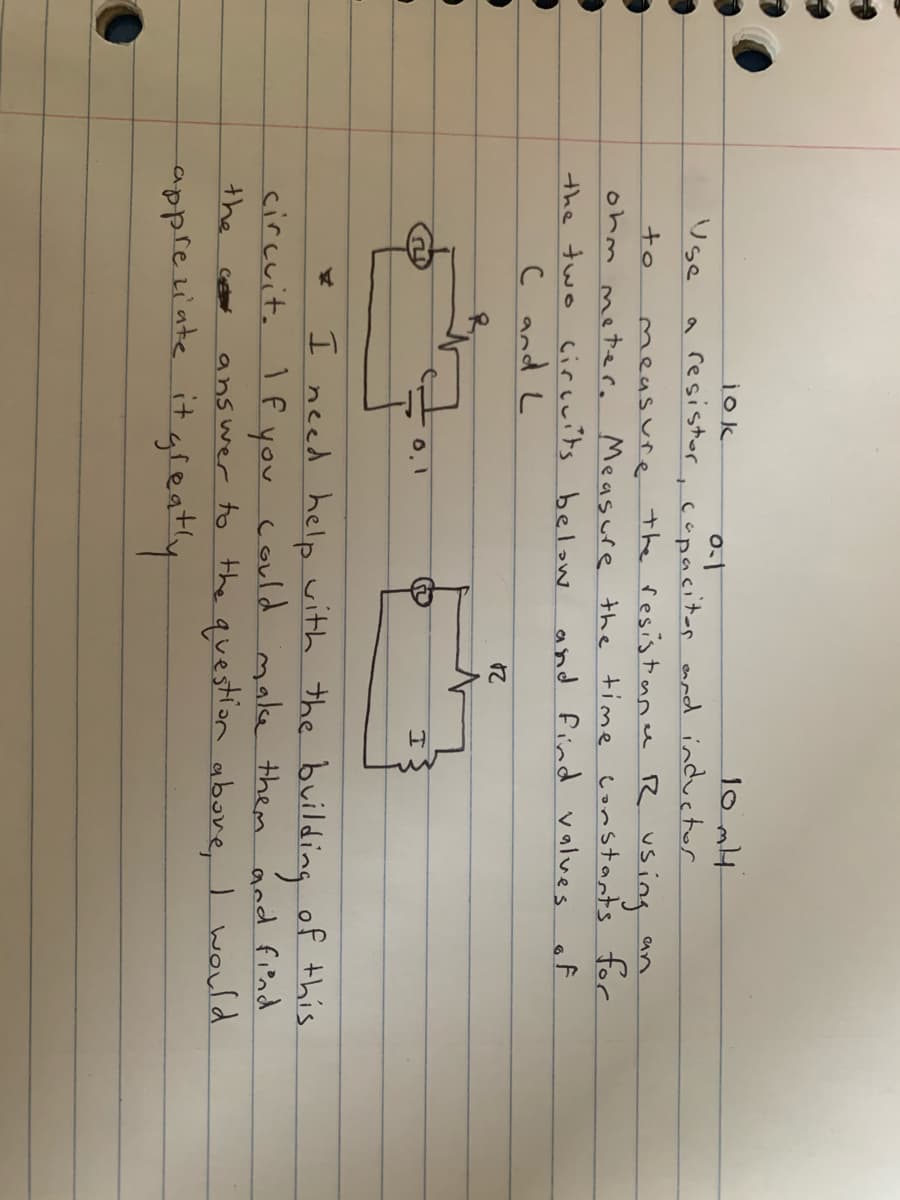 10k 0.1 10 mH
Use a resistor, capacitor and inductor
to measure the resistance R using an
ohm meter. Measure the time constants for
the two circuits below and find values of
C and L
R
R
C 0.1
I
* I need help with the building of this
circuit. If you could make them and find
the answer to the question above, I would
appreciate it greatly